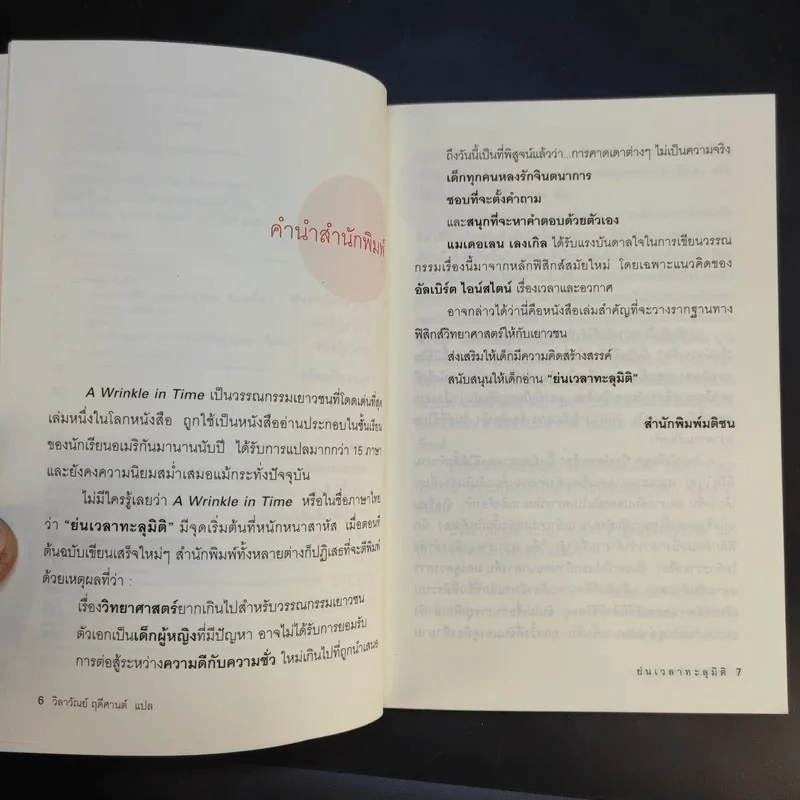 คำนำสำนักพิมพ์
A Wrinkle in Time เป็นวรรณกรรมเยาวชนที่โดดเด่นที่สุด
เล่มหนึ่งในโลกหนังสือ ถูกใช้เป็นหนังสืออ่านประกอบในชั้นเรียน
ของนักเรียนอเมริกันมานานนับปี ได้รับการแปลมากกว่า 15 ภาษา
และยังคงความนิยมสม่ำเสมอแม้กระทั่งปัจจุบัน
ไม่มีใครรู้เลยว่า A Wrinkle in Time หรือในชื่อภาษาไทย
ว่า “ย่นเวลาทะลุมิติ” มีจุดเริ่มต้นที่หนักหนาสาหัส เมื่อตอนที่
ต้นฉบับเขียนเสร็จใหม่ๆ สำนักพิมพ์ทั้งหลายต่างก็ปฏิเสธที่จะตีพิมพ์
ด้วยเหตุผลที่ว่า :
เรื่องวิทยาศาสตร์ยากเกินไปสำหรับวรรณกรรมเยาวชน
ตัวเอกเป็นเด็กผู้หญิงที่มีปัญหา อาจไม่ได้รับการยอมรับ
การต่อสู้ระหว่างความดีกับความชั่ว ใหม่เกินไปที่ถูกนำเสนอ
6 วิลาวัณย์ ฤดีศานต์ แปล
ถึงวันนี้เป็นที่พิสูจน์แล้วว่า...การคาดเดาต่างๆ ไม่เป็นความจริง
เด็กทุกคนหลงรักจินตนาการ
ชอบที่จะตั้งคำถาม
และสนุกที่จะหาคำตอบด้วยตัวเอง
แมเดอเลน เลงเกิล ได้รับแรงบันดาลใจในการเขียนวรรณ
กรรมเรื่องนี้มาจากหลักฟิสิกส์สมัยใหม่ โดยเฉพาะแนวคิดของ
อัลเบิร์ต ไอน์สไตน์ เรื่องเวลาและอวกาศ
อาจกล่าวได้ว่านี่คือหนังสือเล่มสำคัญที่จะวางรากฐานทาง
ฟิสิกส์วิทยาศาสตร์ให้กับเยาวชน
ส่งเสริมให้เด็กมีความคิดสร้างสรรค์
สนับสนุนให้เด็กอ่าน “ย่นเวลาทะลุมิติ”
สำนักพิมพ์มติชน
ย่นเวลาทะลุมิติ 7